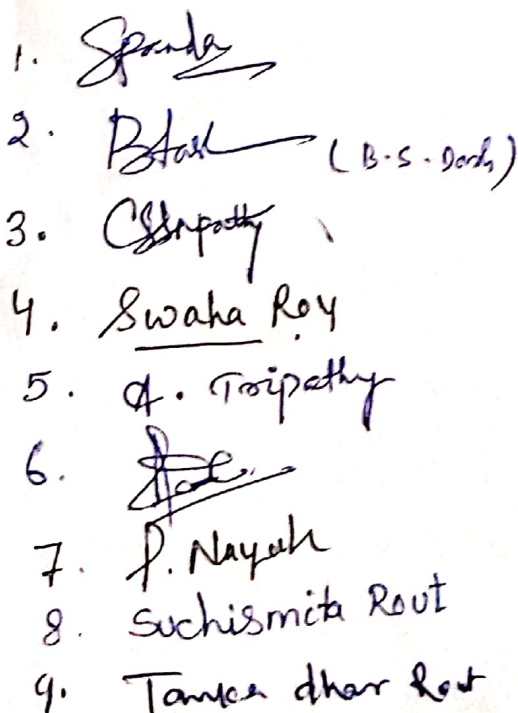 1. Spanda
2. BDash (B.S. Dash)
3. CSSripathy
4. Swaha Roy
5. A. Tripathy
6.
7. P. Nayak
8. Suchismita Rout
9. dhar Rout